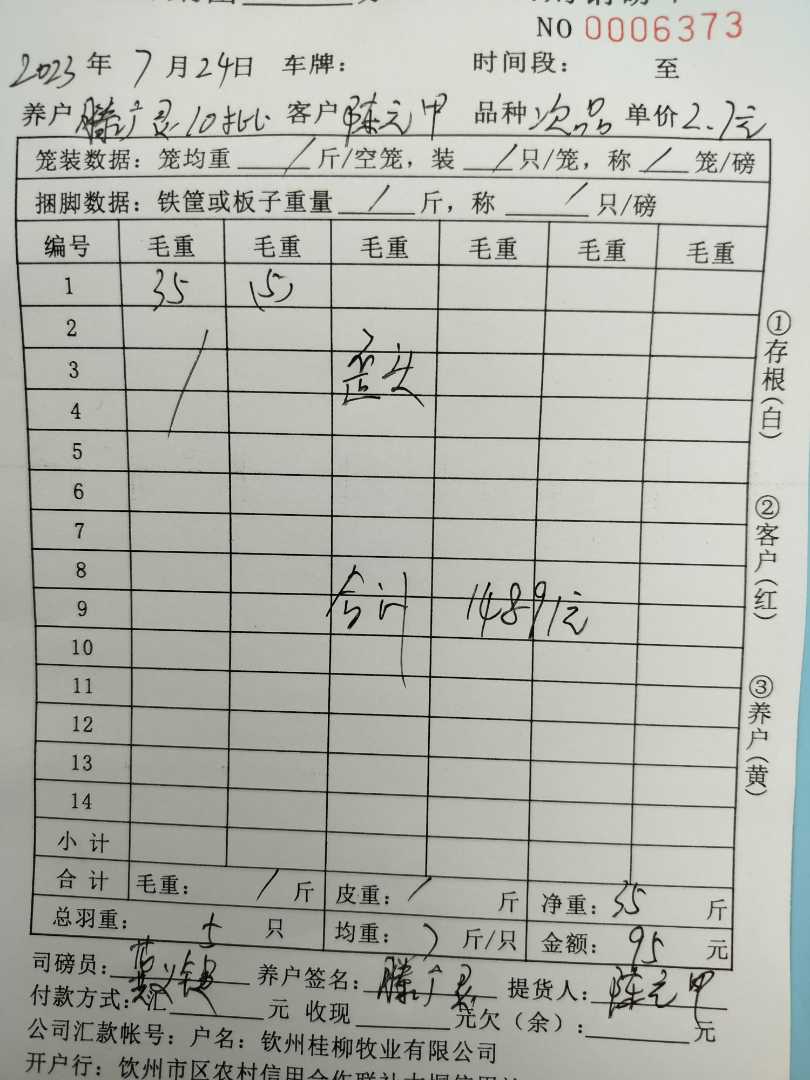 NO 0006373
2023年 7月24日 车牌: 时间段: 至
养户 滕广灵10批 客户 陈元甲 品种 次品 单价 2.7元
笼装数据: 笼均重 / 斤/空笼, 装 / 只/笼, 称 / 笼/磅
捆脚数据: 铁筐或板子重量 / 斤, 称 / 只/磅
编号 毛重 毛重 毛重 毛重 毛重 毛重
1 35 (5)
2
3 歪头
4
5
6
7
8
9 合计 1489元
10
11
12
13
14
小计
合计 毛重: / 斤 皮重: / 斤 净重: 35 斤
总羽重: 5 只 均重: 7 斤/只 金额: 95 元
司磅员: 养户签名: 滕广灵 提货人: 陈元甲
付款方式: 汇 元 收现 元欠(余): 元
公司汇款帐号: 户名: 钦州桂柳牧业有限公司
开户行: 钦州市区农村信用合作联社
①存根(白)
②客户(红)
③养户(黄)